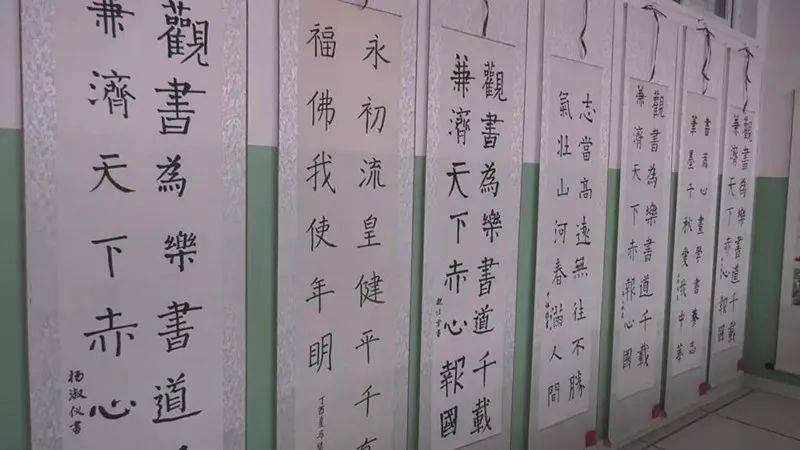 觀書為樂書道
兼濟天下赤心
杨淑仪書
永初流皇健平千
福佛我使年明
丁酉夏
觀書為樂書道千載
兼濟天下赤心報國
志當高遠無往不勝
氣壯山河春滿人間
觀書為樂書道千載
兼濟天下赤心報國
書為心畫學書養志
筆墨千秋愛中華
觀書為樂書道千載
兼濟天下赤心報國